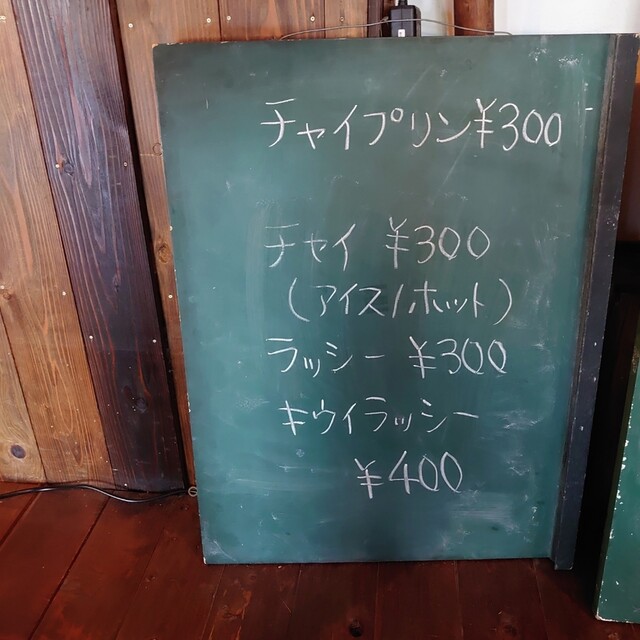 チャイプリン¥300
チャイ ¥300
(アイス/ホット)
ラッシー ¥300
キウイラッシー
¥400